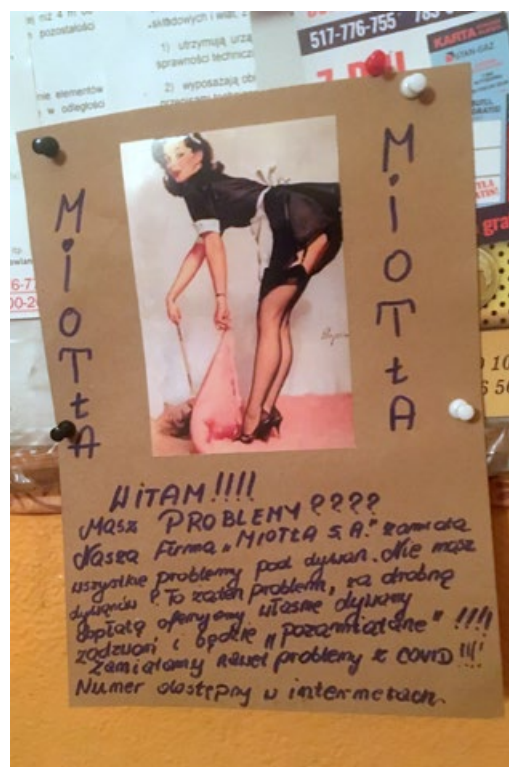 niż 4 m od
pozostałości
nie elementów
w odległości
składowych i wiat, z
1) utrzymują urzą
sprawności techniczn
2) wyposażają ob
517-776-755
KARTA
STAN-GAZ
gra
MIOTŁA
MIOTŁA
WITAM!!!!
MASZ PROBLEMY????
Nasza Firma „MIOTŁA S.A." zamiata
wszystkie problemy pod dywan. Nie masz
dywanów? To żaden problem, za drobną
dopłatą oferujemy własne dywany
zadzwoń i będzie „pozamiatane" !!!!
Zamiatamy nawet problemy z COVID !!!!
Numer dostępny w internetach.